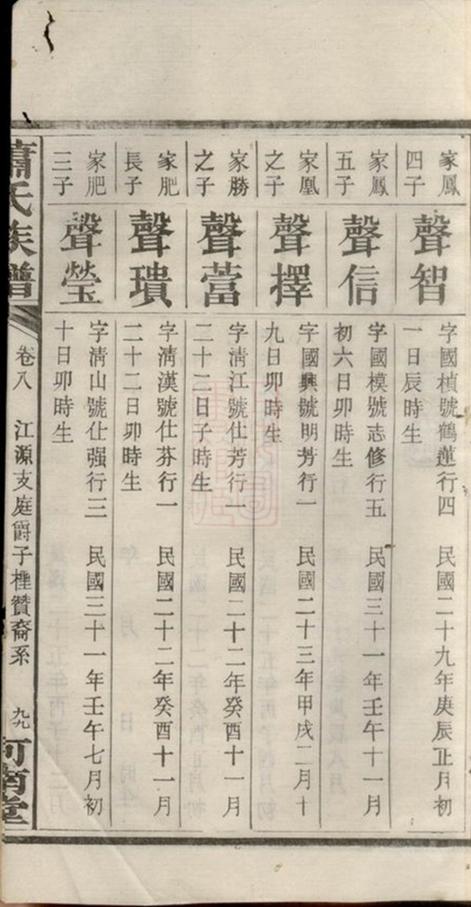 家鳳
四子
聲智
字國楨號鶴蓮行四 民國二十九年庚辰正月初
一日辰時生
家鳳
五子
聲信
字國模號志修行五 民國三十一年壬午十一月
初六日卯時生
家凰
之子
聲擇
字國興號明芳行一 民國二十三年甲戌二月十
九日卯時生
家勝
之子
聲蓸
字淸江號仕芳行一 民國二十二年癸酉十一月
二十二日子時生
家肥
長子
聲璝
字淸漢號仕芬行一 民國二十二年癸酉十一月
二十二日卯時生
家肥
三子
聲瑩
字淸山號仕强行三 民國三十一年壬午七月初
十日卯時生
蕭氏族譜
卷八 江源支庭爵子桂贊裔系 九九
河南堂